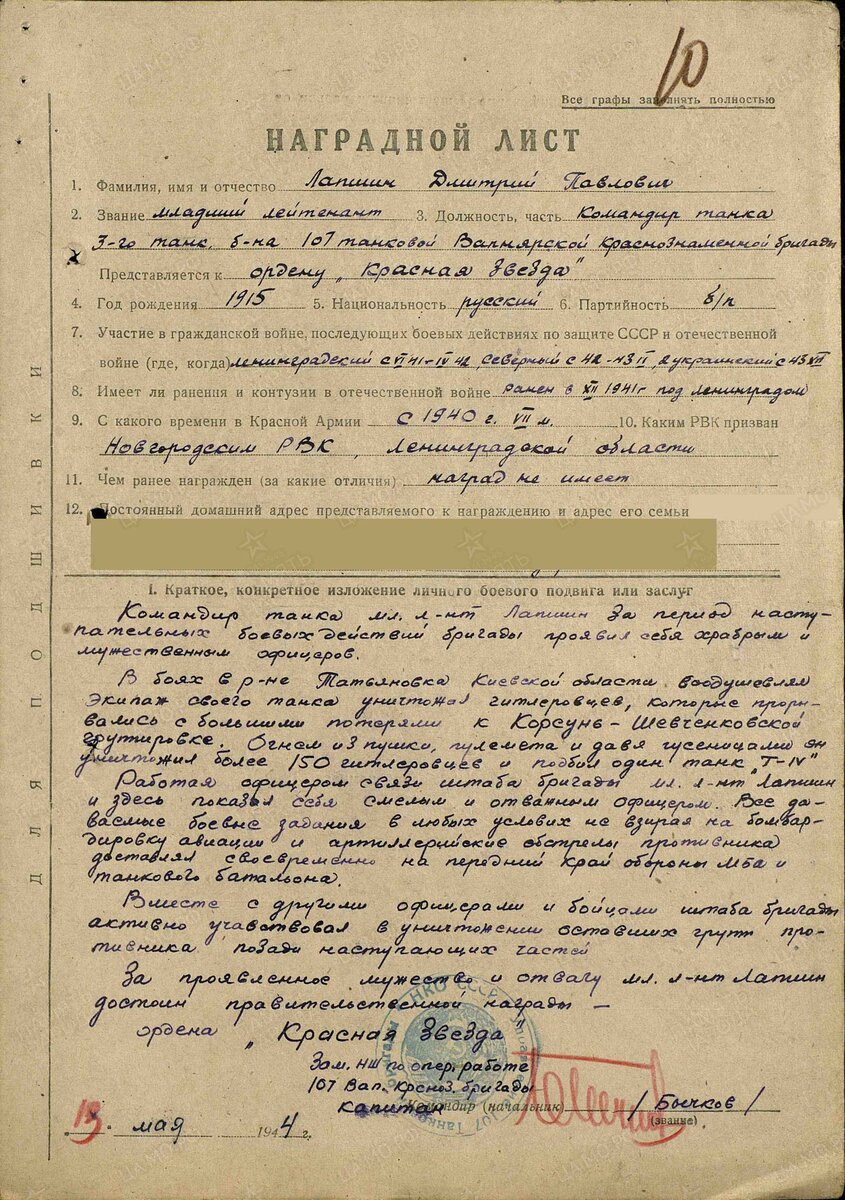 10
Все графы заполнять полностью
НАГРАДНОЙ ЛИСТ
1. Фамилия, имя и отчество Лапшин Дмитрий Павлович
2. Звание младший лейтенант 3. Должность, часть Командир танка
3-го танк. б-на 107 танковой Вапнярской Краснознаменной бригады
Представляется к ордену „Красная Звезда"
4. Год рождения 1915 5. Национальность русский 6. Партийность б/п
7. Участие в гражданской войне, последующих боевых действиях по защите СССР и отечественной
войне (где, когда) Ленинградский с VI 41-IV 42, Северный с 42-43 II, 2 украинский с 43 XII
8. Имеет ли ранения и контузии в отечественной войне ранен в XII 1941г под Ленинградом
9. С какого времени в Красной Армии с 1940 г. VII м. 10. Каким РВК призван
Новгородским РВК, Ленинградской области
11. Чем ранее награжден (за какие отличия) наград не имеет
12. Постоянный домашний адрес представляемого к награждению и адрес его семьи
I. Краткое, конкретное изложение личного боевого подвига или заслуг
Командир танка мл. л-нт Лапшин за период насту-
пательных боевых действий бригады проявил себя храбрым и
мужественным офицеров.
В боях в р-не Татьяновка Киевской области воодушевляя
экипаж своего танка уничтожал гитлеровцев, которые проры-
вались с большими потерями к Корсунь-Шевченковской
групировке. Огнем из пушки, пулемета и давя гусеницами он
уничтожил более 150 гитлеровцев и подбил один танк „Т-IV"
Работая офицером связи штаба бригады мл. л-нт Лапшин
и здесь показал себя смелым и отважным офицером. Все да-
ваемые боевые задания в любых услових не взирая на бомбар-
дировку авиации и артиллерийские обстрелы противника
доставлял своевременно на передний край обороны МБА и
танкового батальона.
Вместе с другими офицерами и бойцами штаба бригады
активно учавствовал в уничтожении оставших групп про-
тивника позади наступающих частей
За проявленное мужество и отвагу мл. л-нт Лапшин
достоин правительственной награды —
ордена „Красная Звезда"
Зам. НШ по опер. работе
107 Вап. Красноз. бригады
капитан Командир (начальник) /Бычков/
(звание)
13. мая 1944 г.
ДЛЯ ПОДШИВКИ